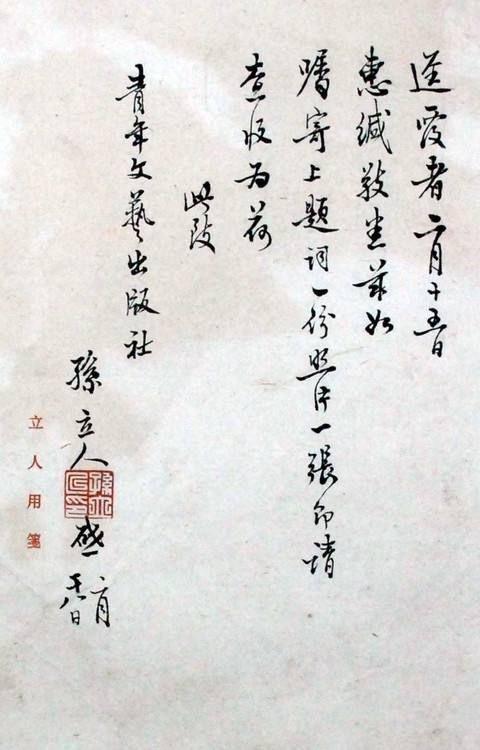 逕覆者二月十五日
惠緘敬悉茲如
囑寄上題詞一份照片一張即請
查收為荷
此致
青年文藝出版社
孫立人
孫立人印
啟
二月
日
立人用箋